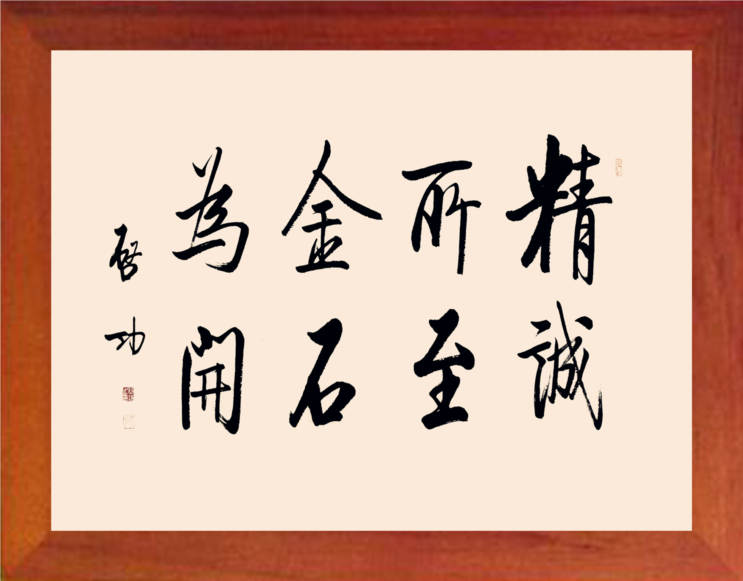 精誠
所至
金石
為開
啓功